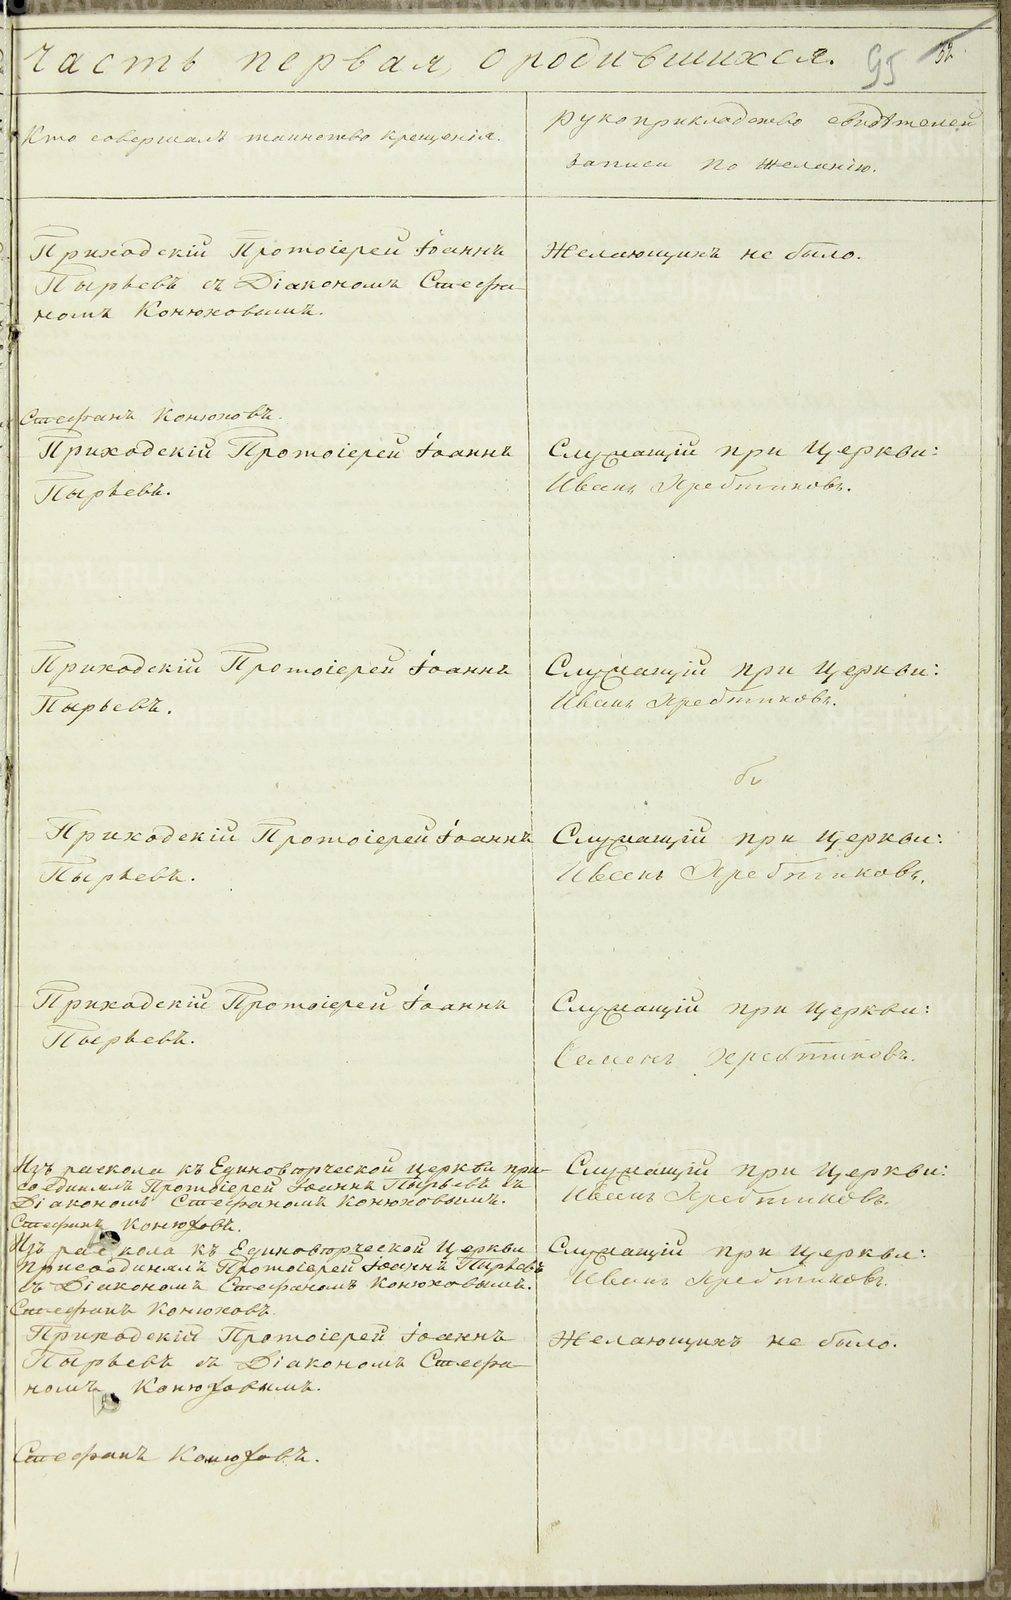 Часть первая, о родившихся. 95
Кто совершалъ таинство крещенія.
рукоприкладство свидѣтелей
записи по желанію.
Приходскій Протоіерей Іоаннъ
Пырьевъ съ Діакономъ Стефа-
номъ Конюховымъ.
Желающихъ не было.
Стефанъ Конюховъ.
Приходскій Протоіерей Іоаннъ
Пырьевъ.
Служащій при Церкви:
Иванъ Хребтиковъ.
Приходскій Протоіерей Іоаннъ
Пырьевъ.
Служащій при Церкви:
Иванъ Хребтиковъ.
Приходскій Протоіерей Іоаннъ
Пырьевъ.
Служащій при Церкви:
Иванъ Хребтиковъ.
Приходскій Протоіерей Іоаннъ
Пырьевъ.
Служащій при Церкви:
Семенъ Хребтиковъ.
Изъ раскола къ Единовѣрческой Церкви при-
соединялъ Протоіерей Іоаннъ Пырьевъ съ
Діакономъ Стефаномъ Конюховымъ.
Стефанъ Конюховъ.
Служащій при Церкви:
Иванъ Хребтиковъ.
Изъ раскола къ Единовѣрческой Церкви
присоединялъ Протоіерей Іоаннъ Пырьевъ
съ Діакономъ Стефаномъ Конюховымъ.
Стефанъ Конюховъ.
Служащій при Церкви:
Иванъ Хребтиковъ.
Приходскій Протоіерей Іоаннъ
Пырьевъ съ Діакономъ Стефа-
номъ Конюховымъ.
Желающихъ не было.
Стефанъ Конюховъ.
METRIKI.GASO-URAL.RU